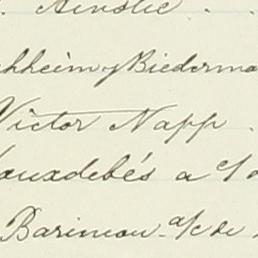 Ainslie . .
chheim y Biederma
Victor Napp .
Louxdebés a c/
Barimon - a/c de